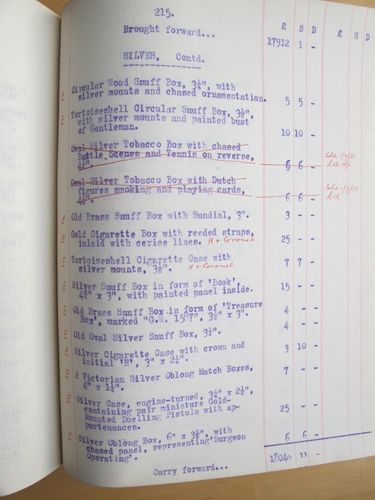 215.
£ S D £ S D
Brought forward... 17912 1 -
SILVER, Contd.
E Circular Wood Snuff Box, 3¼", with
silver mounts and chased ornamentation. 5 5 -
E Tortoiseshell Circular Snuff Box, 3½",
with silver mounts and painted bust
of Gentleman. 10 10 -
Oval Silver Tobacco Box with chased
Battle Scenes and Tennis on reverse, 6 6 -
Oval Silver Tobacco Box with Dutch
figures smoking and playing cards, 6 6 -
E Old Brass Snuff Box with Sundial, 3". 3 - -
E Gold Cigarette Box with reeded straps,
inlaid with cerise lines. H & Coronet 25 - -
E Tortoiseshell Cigarette Case with
silver mounts, 3½". H & Coronet 7 7 -
E Silver Snuff Box in form of 'Book',
with painted panel inside. 15 - -
E Old Brass Snuff Box in form of 'Treasure
Box', marked 4 - -
E Old Oval Silver Snuff Box, 3¼". 4 - -
E Silver Cigarette Case with crown and
initial 3 10 -
E 2 Victorian Silver Oblong Match Boxes, 7 - -
E Silver Case, engine-turned,
containing pair miniature Gold-
Mounted Duelling Pistols with ap-
purtenances. 25 - -
E Silver Oblong Box, 6" x 3½", with
chased panel, representing 'Surgeon
Operating'. 6 6 -
Carry forward... 11 -